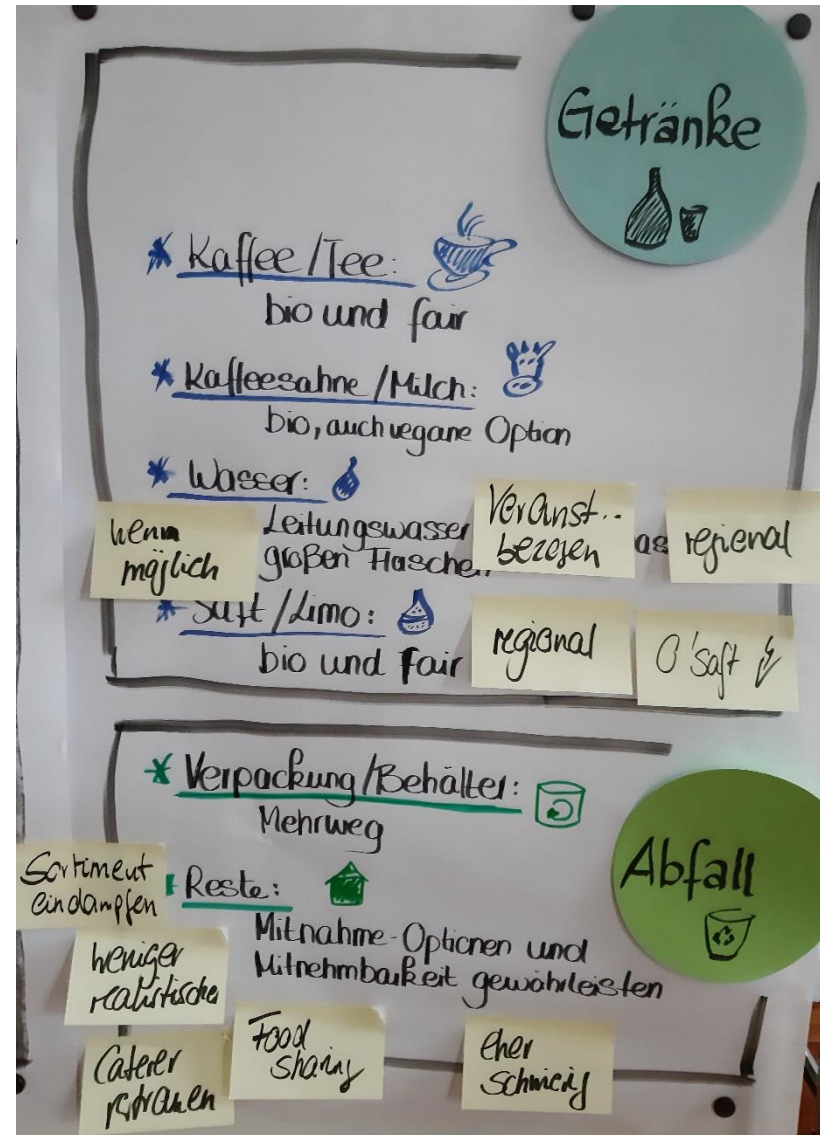 Getränke
* Kaffee/Tee:
bio und fair
* Kaffeesahne/Milch:
bio, auch vegane Option
* Wasser:
Leitungswasser
großen Flaschen
wenn
möglich
Veranst..
bezogen
as
regional
* Saft/Limo:
bio und fair
regional
O'Saft
* Verpackung/Behälter:
Mehrweg
Abfall
* Reste:
Mitnahme-Optionen und
Mitnehmbarkeit gewährleisten
Sortiment
eindampfen
weniger
realistischer
Caterer
vertrauen
Food
sharing
eher
schwierig